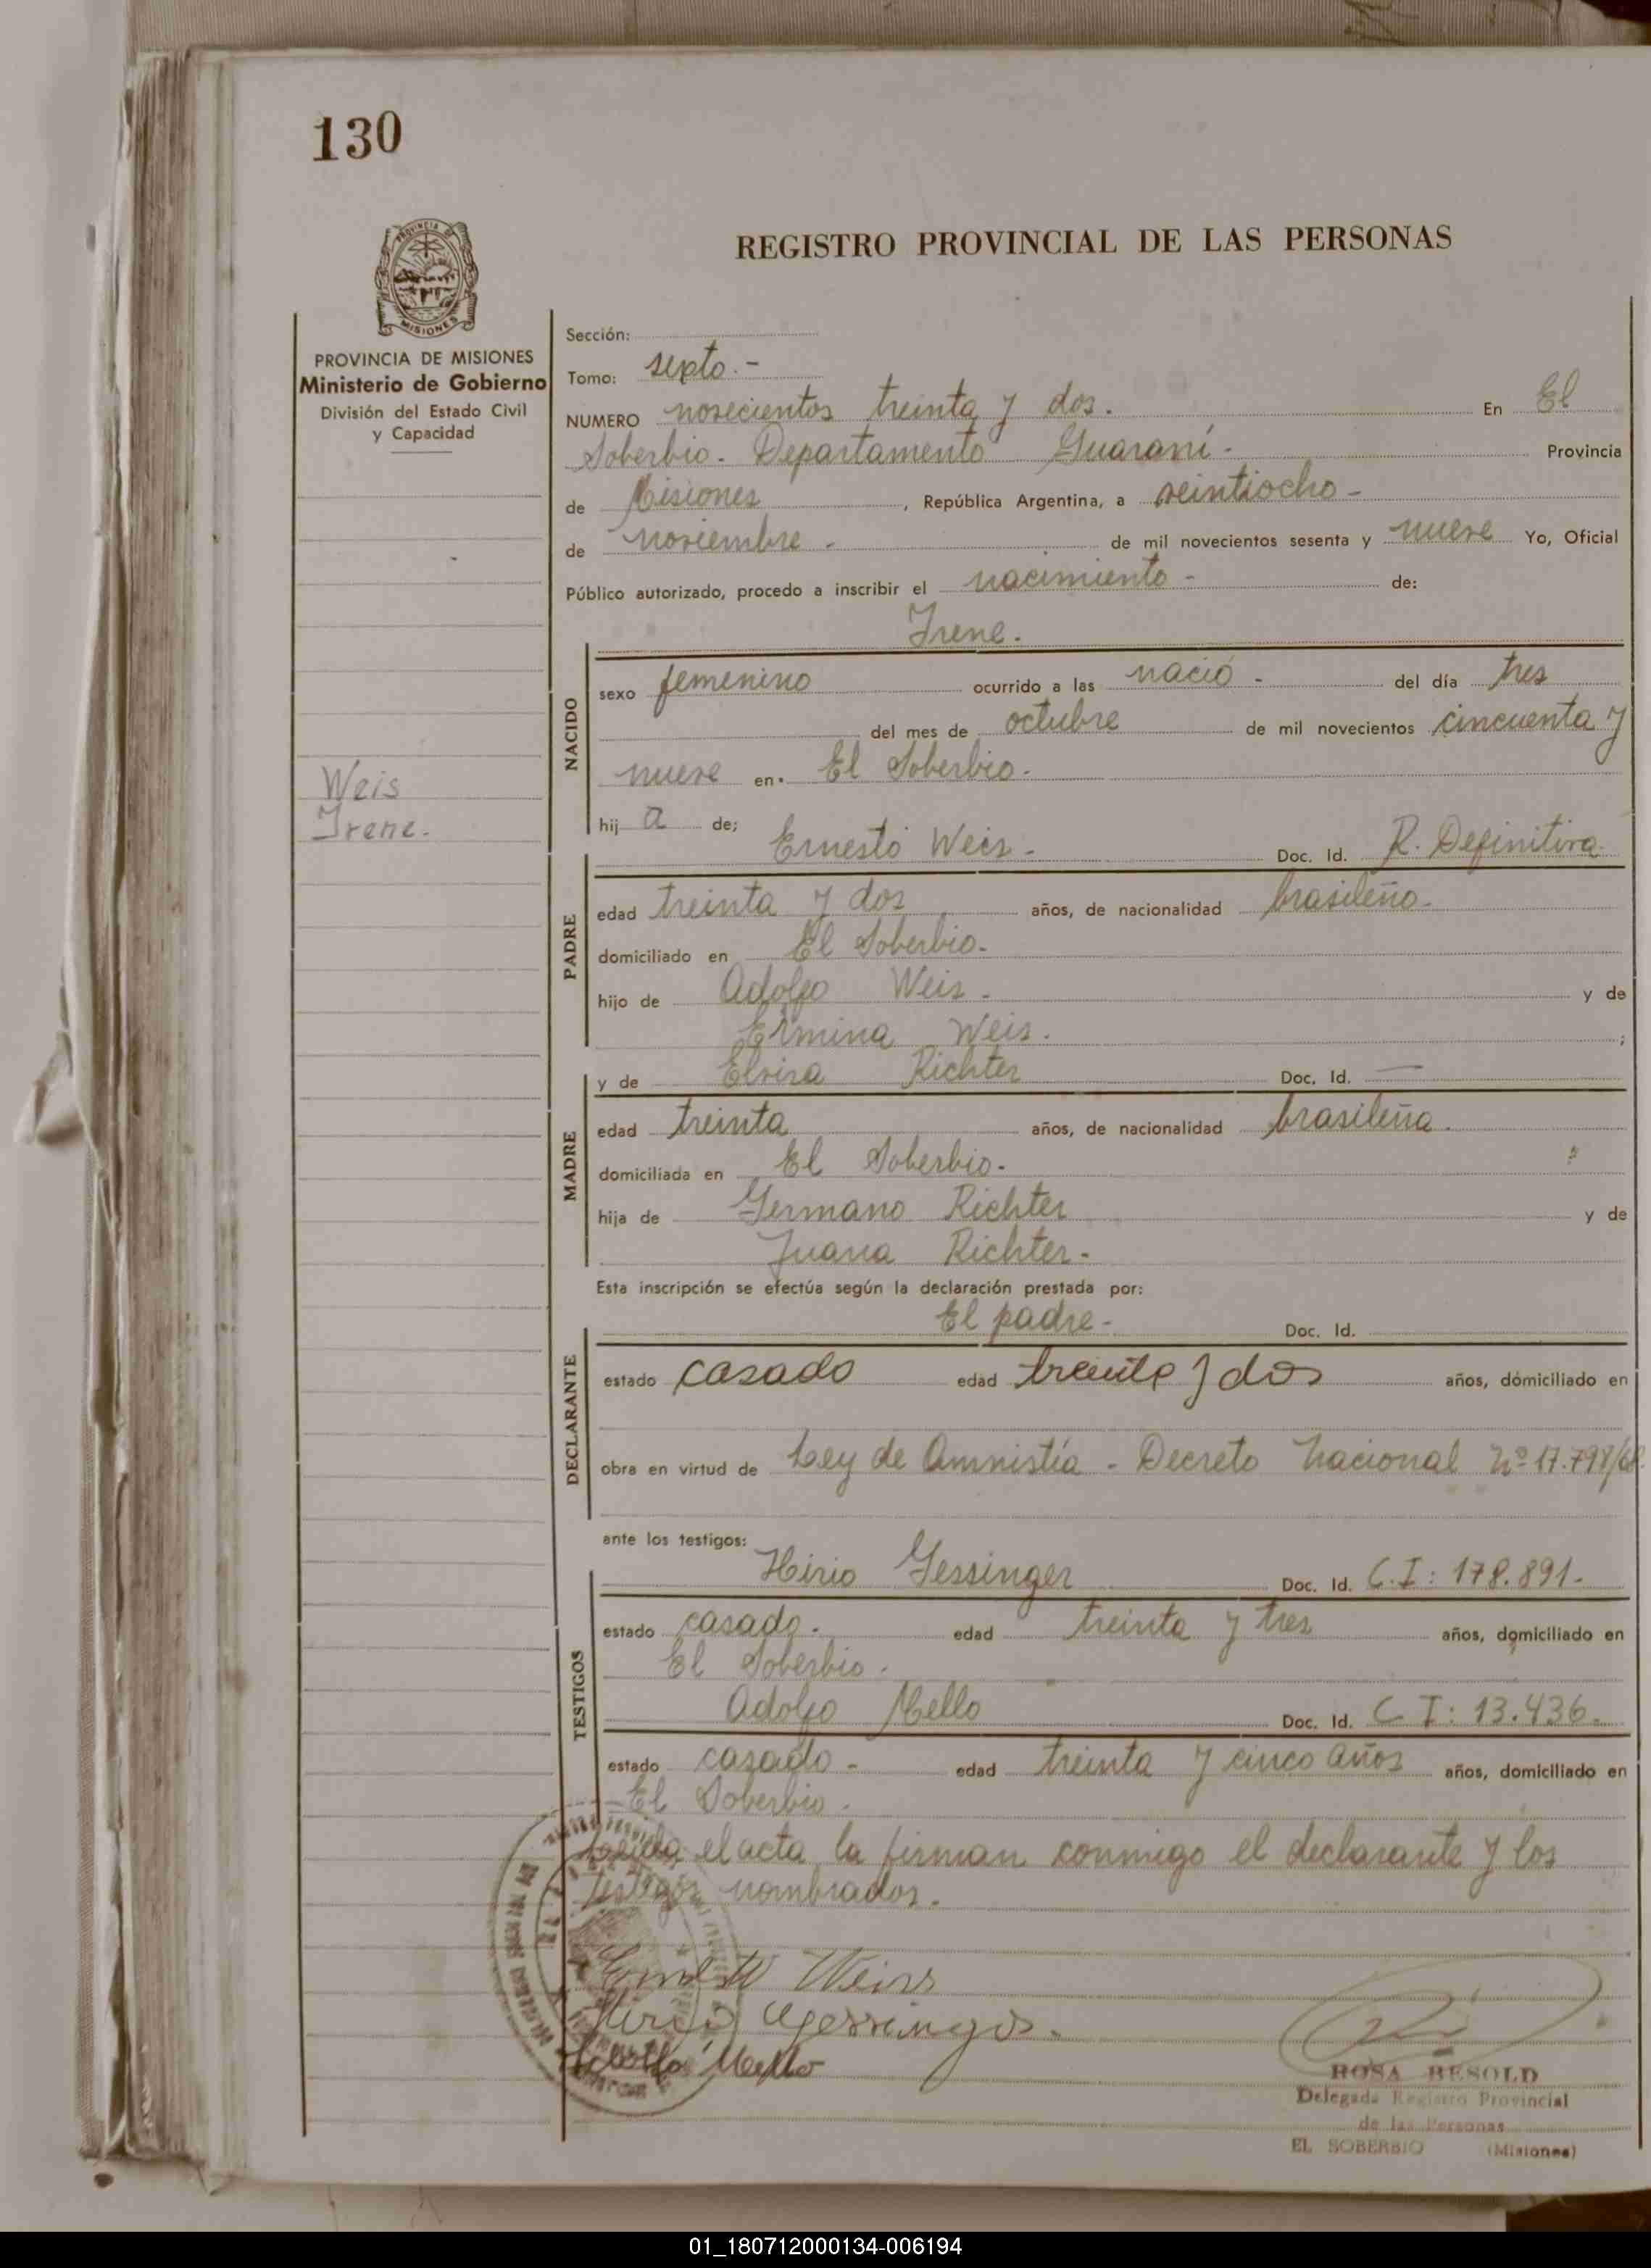 130
PROVINCIA DE
MISIONES
REGISTRO PROVINCIAL DE LAS PERSONAS
PROVINCIA DE MISIONES
Ministerio de Gobierno
División del Estado Civil
y Capacidad
Weis
Irene.
Sección:
Tomo: sexto.-
NUMERO novecientos treinta y dos. En El
Soberbio. Departamento Guaraní - Provincia
de Misiones, República Argentina, a veintiocho -
de noviembre - de mil novecientos sesenta y nueve Yo, Oficial
Público autorizado, procedo a inscribir el nacimiento - de:
Irene.
NACIDO
sexo femenino ocurrido a las nació - del día tres
del mes de octubre de mil novecientos cincuenta y
nueve en. El Soberbio.
hij a de;
Ernesto Weis - Doc. Id. R. Definitiva.
PADRE
edad treinta y dos años, de nacionalidad brasileño.
domiciliado en El Soberbio.
hijo de Adolfo Weis - y de
Ermina Weis. ;
y de Elvira Richter Doc. Id. —
MADRE
edad treinta años, de nacionalidad brasileña.
domiciliada en El Soberbio.
hija de Germano Richter y de
Juana Richter.
Esta inscripción se efectúa según la declaración prestada por:
El padre - Doc. Id.
DECLARANTE
estado casado edad treinta y dos años, domiciliado en
obra en virtud de Ley de Amnistía - Decreto Nacional Nº 17.798/68.
ante los testigos:
TESTIGOS
Hirio Gessinger Doc. Id. C.I: 178.891.
estado casado. edad treinta y tres años, domiciliado en
El Soberbio.
Adolfo Mello Doc. Id. C I: 13.436.
estado casado - edad treinta y cinco años años, domiciliado en
El Soberbio.
Leída el acta la firman conmigo el declarante y los
testigos nombrados.
Weiss
Mello
ROSA BESOLD
Delegada Registro Provincial
de las Personas
EL SOBERBIO (Misiones)
01_180712000134-006194